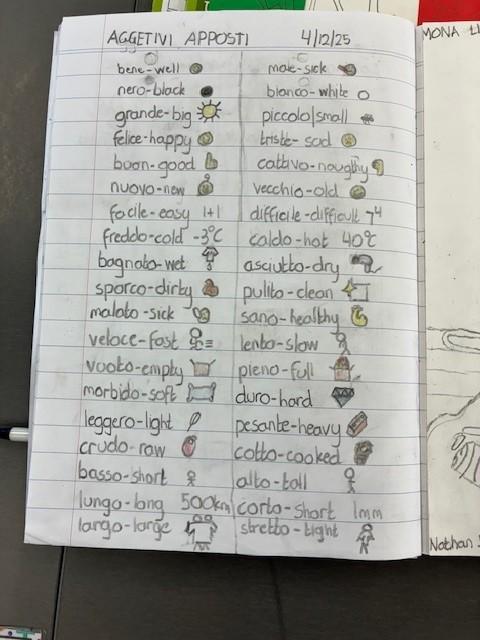 AGGETIVI APPOSTI 4/12/25
bene-well male-sick
nero-black bianco-white
grande-big piccolo|small
felice-happy triste-sad
buon-good cattivo-noughy
nuovo-new vecchio-old
facile-easy 1+1 difficile-difficult 7⁴
freddo-cold -3°C caldo-hot 40°C
bagnato-wet asciutto-dry
sporco-dirty pulito-clean
malato-sick sano-healthy
veloce-fast lento-slow
vuoto-empty pieno-full
morbido-soft duro-hard
leggero-light pesante-heavy
crudo-raw cotto-cooked
basso-short alto-tall
lungo-long 500km corto-short 1mm
largo-large stretto-tight
MONA
Nathan